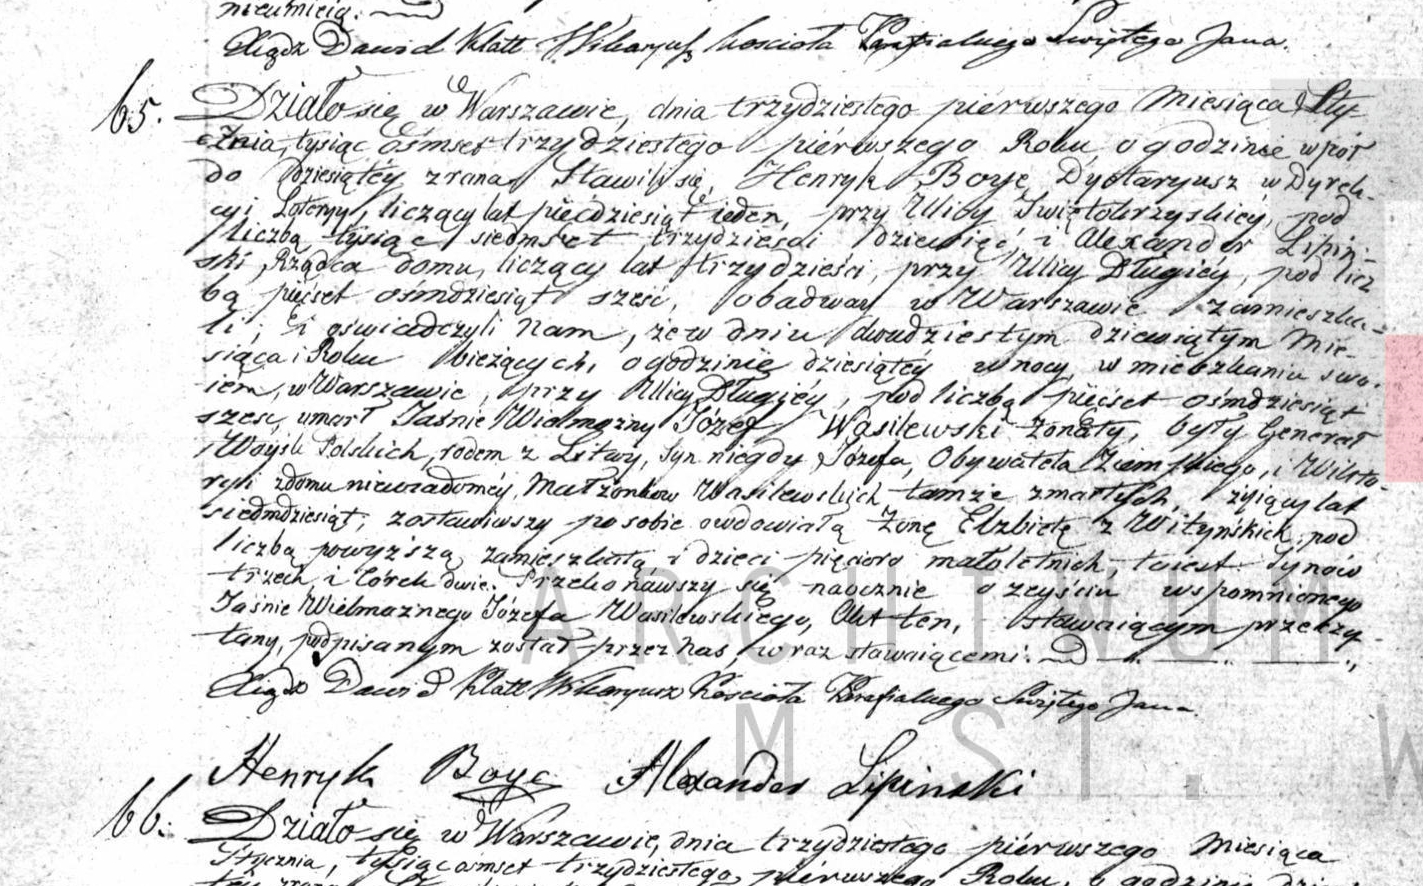 nieumieią.
Xiądz Dawid Klatt Wikaryusz Kościoła Parafialnego Świętego Jana.
65. Działo się w Warszawie, dnia trzydziestego piérwszego Miesiąca Sty-
cznia, tysiąc óśmset trzydziestego piérwszego Roku, o godzinie wpół
do dziesiątéy zrana. Stawili się, Henryk Boye Dyetaryusz w Dyrek-
cyi Loteryi, liczący lat pięćdziesiąt ieden, przy Ulicy Swiętokrzyskiéy, pod
liczbą tysiąc siedmset trzydzieści dziewięć, i Alexander Lipiń-
ski Rządca domu, liczący lat trzydzieści, przy Ulicy Długiéy, pod licz
bą pięćset ośmdziesiąt sześć, obadway w Warszawie zamieszka-
li; i oświadczyli Nam, że w dniu dwudziestym dziewiątym Mie-
siąca i Roku bieżących, o godzinie dziesiątéy w nocy, w mieszkaniu swo-
iem, w Warszawie, przy Ulicy Długiéy, pod liczbą pięćset ośmdziesiąt
sześć, umarł Jaśnie Wielmożny Józef Wasilewski żonaty, były Generał
Woysk Polskich, rodem z Litwy, syn niegdy Józefa, Obywatela Ziemskiego, i Wikto-
ryi zdomu niewiadoméy, Małżonków Wasilewskich tamże zmarłych, żyiący lat
siedmdziesiąt, zostawiwszy po sobie owdowiałą Żonę Elżbietę z Wityńskich, pod
liczbą powyższą zamieszkałą i dzieci pięcioro małoletnich, to iest synów
trzech, i Córek dwie. Przekonawszy się naocznie o zeyściu wspomnionego
Jaśnie Wielmożnego Józefa Wasilewskiego, Akt ten, stawaiącym przeczy-
tany, podpisanym został przez nas, wraz stawaiącemi.
Xiądz Dawid Klatt Wikaryusz Kościoła Parafialnego Świętego Jana
Henryk Boye Alexander Lipinski
66. Działo się w Warszawie, dnia trzydziestego piérwszego Miesiąca
Stycznia, tysiąc ośmset trzydziestego piérwszego Roku, o godzinie
ARCHIWUM
M ST. W